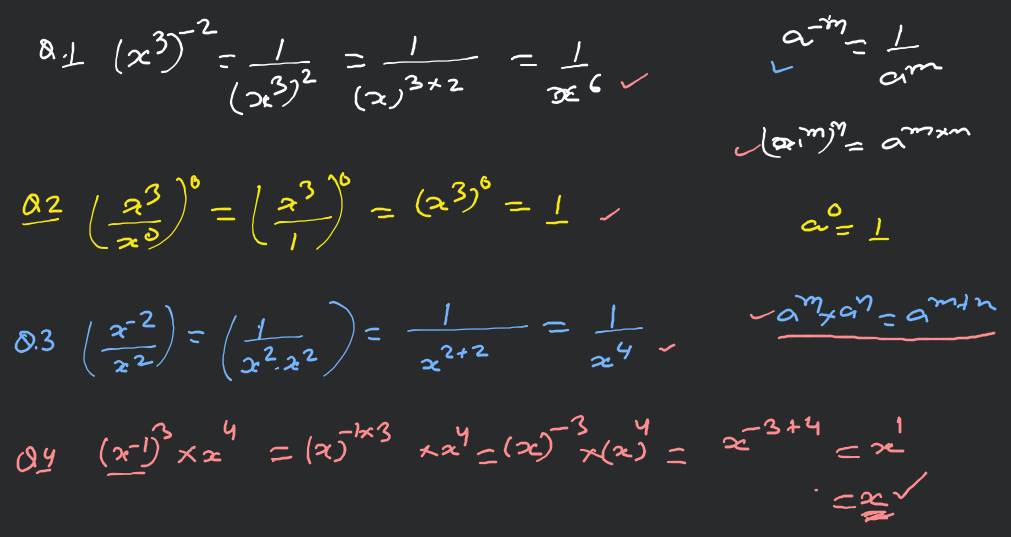 Q.1 (x³)⁻² = 1/(x³)² = 1/(x)³ˣ² = 1/x⁶ ✓
a⁻ᵐ = 1/aᵐ ✓
✓ (aᵐ)ⁿ = aᵐˣⁿ
Q2 (x³/x⁰)⁰ = (x³/1)⁰ = (x³)⁰ = 1 ✓
a⁰ = 1
Q.3 (x⁻²/x²) = (1/x².x²) = 1/x²⁺² = 1/x⁴ ✓
✓ aᵐ×aⁿ = aᵐ⁺ⁿ
Q4 (x-1)³ × x⁴ = (x)⁻¹ˣ³ × x⁴ = (x)⁻³ × (x)⁴ = x⁻³⁺⁴ = x¹
= x ✓